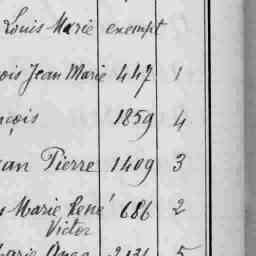 Louis Marie exempt
ois Jean Marie 447 1
çois 1859 4
an Pierre 1409 3
Marie René 686 2
Victor